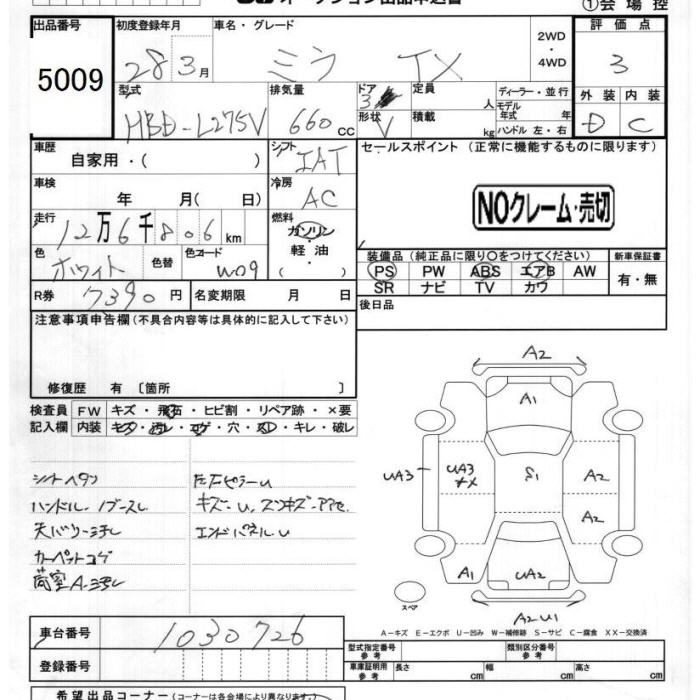 オークション出品申込書
①会場控
出品番号 初度登録年月 車名・グレード 2WD・4WD 評価点
5009 28 3月 ミラ TX 3
型式 排気量 ドア 定員 人 ディーラー・並行 外装 内装
HBD-L275V 660cc 3 形状 V 積載 kg モデル年式 年 ハンドル 左・右 D C
車歴 シフト セールスポイント (正常に機能するものに限ります)
自家用・( ) IAT
車検 冷房
年 月( 日) AC
NOクレーム・売切
走行 燃料
12万6千806km ガソリン・軽油・( )
色 色替 色コード 装備品 (純正品に限り○をつけてください) 新車保証書
ホワイト W09 PS PW ABS エアB AW 有・無
SR ナビ TV カワ
R券 7390円 名変期限 月 日 後日品
注意事項申告欄(不具合内容等は具体的に記入して下さい)
修復歴 有 〔箇所 〕
検査員 FW キズ・飛石・ヒビ割・リペア跡・×要
記入欄 内装 キズ・汚レ・コゲ・穴・スレ・キレ・破レ
シートヘタリ
ハンドル・ノブースレ
天バリー汚レ
カーペットコゲ
荷室A・汚レ
左右ピラーU
エンドパネルU
A2
A1
UA3 UA3 S1 A2
A2
A1 UA2
スペア A2U1
A-キズ E-エクボ U-凹み W-補修跡 S-サビ C-腐食 XX-交換済
車台番号 1030726 型式指定番号 参考 類別区分番号 参考
登録番号 車庫証明用 参考 長さ cm 幅 cm 高さ cm
希望出品コーナー(コーナーは各会場により異なります)